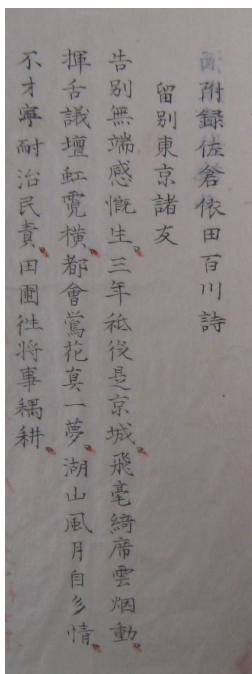 附録佐倉依田百川詩
留別東京諸友
告別無端感慨生三年祗役是京城飛毫綺席雲烟動
揮舌議壇虹霓横都會鶯花真一夢湖山風月自多情
不才寧耐治民責田圃徃将事耦耕